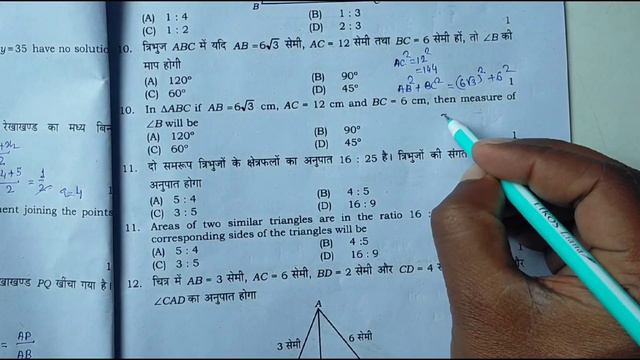 B
(A) 1 : 4
(B) 1 : 3
(C) 1 : 2
(D) 2 : 3
1
y=35 have no solutio
10. त्रिभुज ABC में यदि AB = 6√3 सेमी, AC = 12 सेमी तथा BC = 6 सेमी हों, तो ∠B की
माप होगी
AC² = 12²
= 144
(A) 120°
(B) 90°
(C) 60°
(D) 45°
AB² + BC² = (6√3)² + 6²
1
10. In ΔABC if AB = 6√3 cm, AC = 12 cm and BC = 6 cm, then measure of
∠B will be
(A) 120°
(B) 90°
(C) 60°
(D) 45°
1
रेखाखण्ड का मध्य बिन
11. दो समरूप त्रिभुजों के क्षेत्रफलों का अनुपात 16 : 25 है। त्रिभुजों की संगत
अनुपात होगा
(A) 5 : 4
(B) 4 : 5
(C) 3 : 5
(D) 16 : 9
ment joining the points
11. Areas of two similar triangles are in the ratio 16 :
corresponding sides of the triangles will be
(A) 5 : 4
(B) 4 :5
(C) 3 : 5
(D) 16 : 9
1
खाखण्ड PQ खींचा गया है।
12. चित्र में AB = 3 सेमी, AC = 6 सेमी, BD = 2 सेमी और CD = 4
∠CAD का अनुपात होगा
A
3 सेमी
6 सेमी
= AP
AB